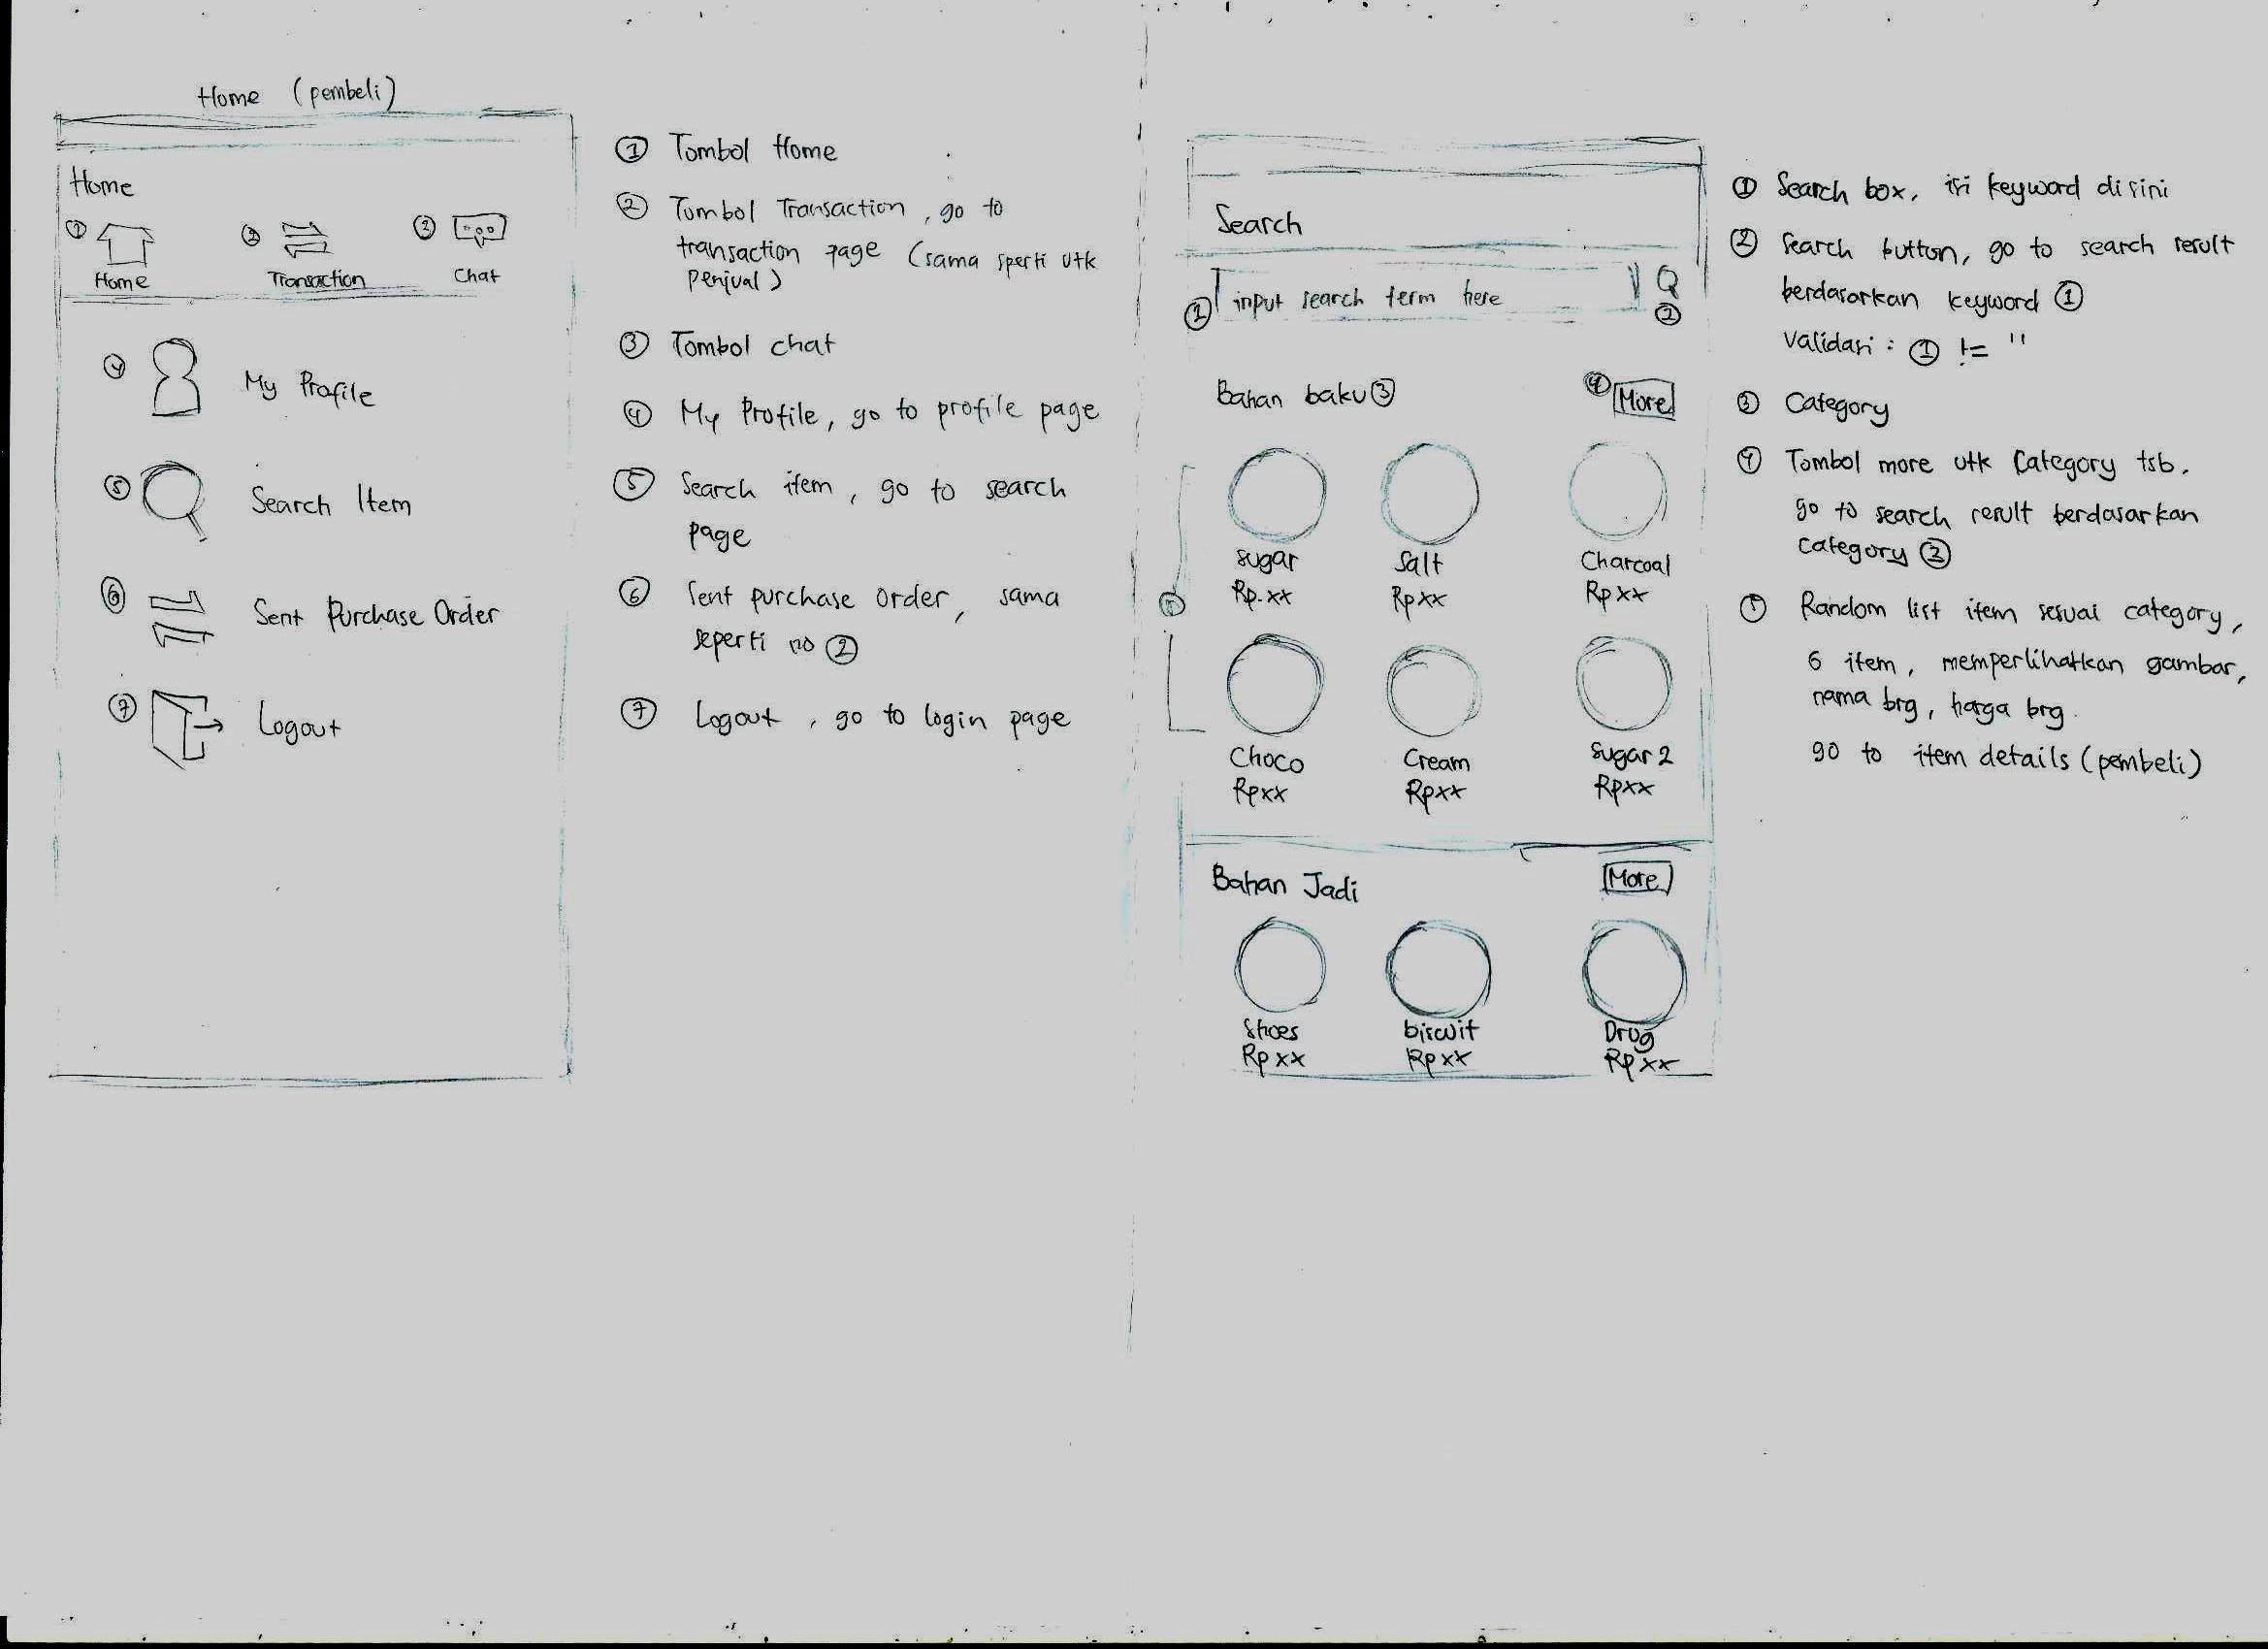 Home (pembeli)
Home
① ② ③
Home Transaction Chat
④ My Profile
⑤ Search Item
⑥ Sent Purchase Order
⑦ Logout
① Tombol Home
② Tombol Transaction, go to
transaction page (sama sperti utk
penjual)
③ Tombol chat
④ My Profile, go to profile page
⑤ Search item, go to search
page
⑥ Sent purchase order, sama
seperti no ②
⑦ Logout, go to login page
Search
① input search term here ②
Bahan baku ③ ④ More
sugar Salt Charcoal
Rp.xx Rpxx Rpxx
⑤
Choco Cream Sugar 2
Rpxx Rpxx Rpxx
Bahan Jadi More
Shoes biscuit Drug
Rpxx Rpxx Rpxx
① Search box, isi keyword disini
② Search button, go to search result
berdasarkan keyword ①
Validasi : ① != ''
③ Category
④ Tombol more utk Category tsb.
go to search result berdasarkan
category ③
⑤ Random list item sesuai category,
6 item, memperlihatkan gambar,
nama brg, harga brg.
go to item details (pembeli)